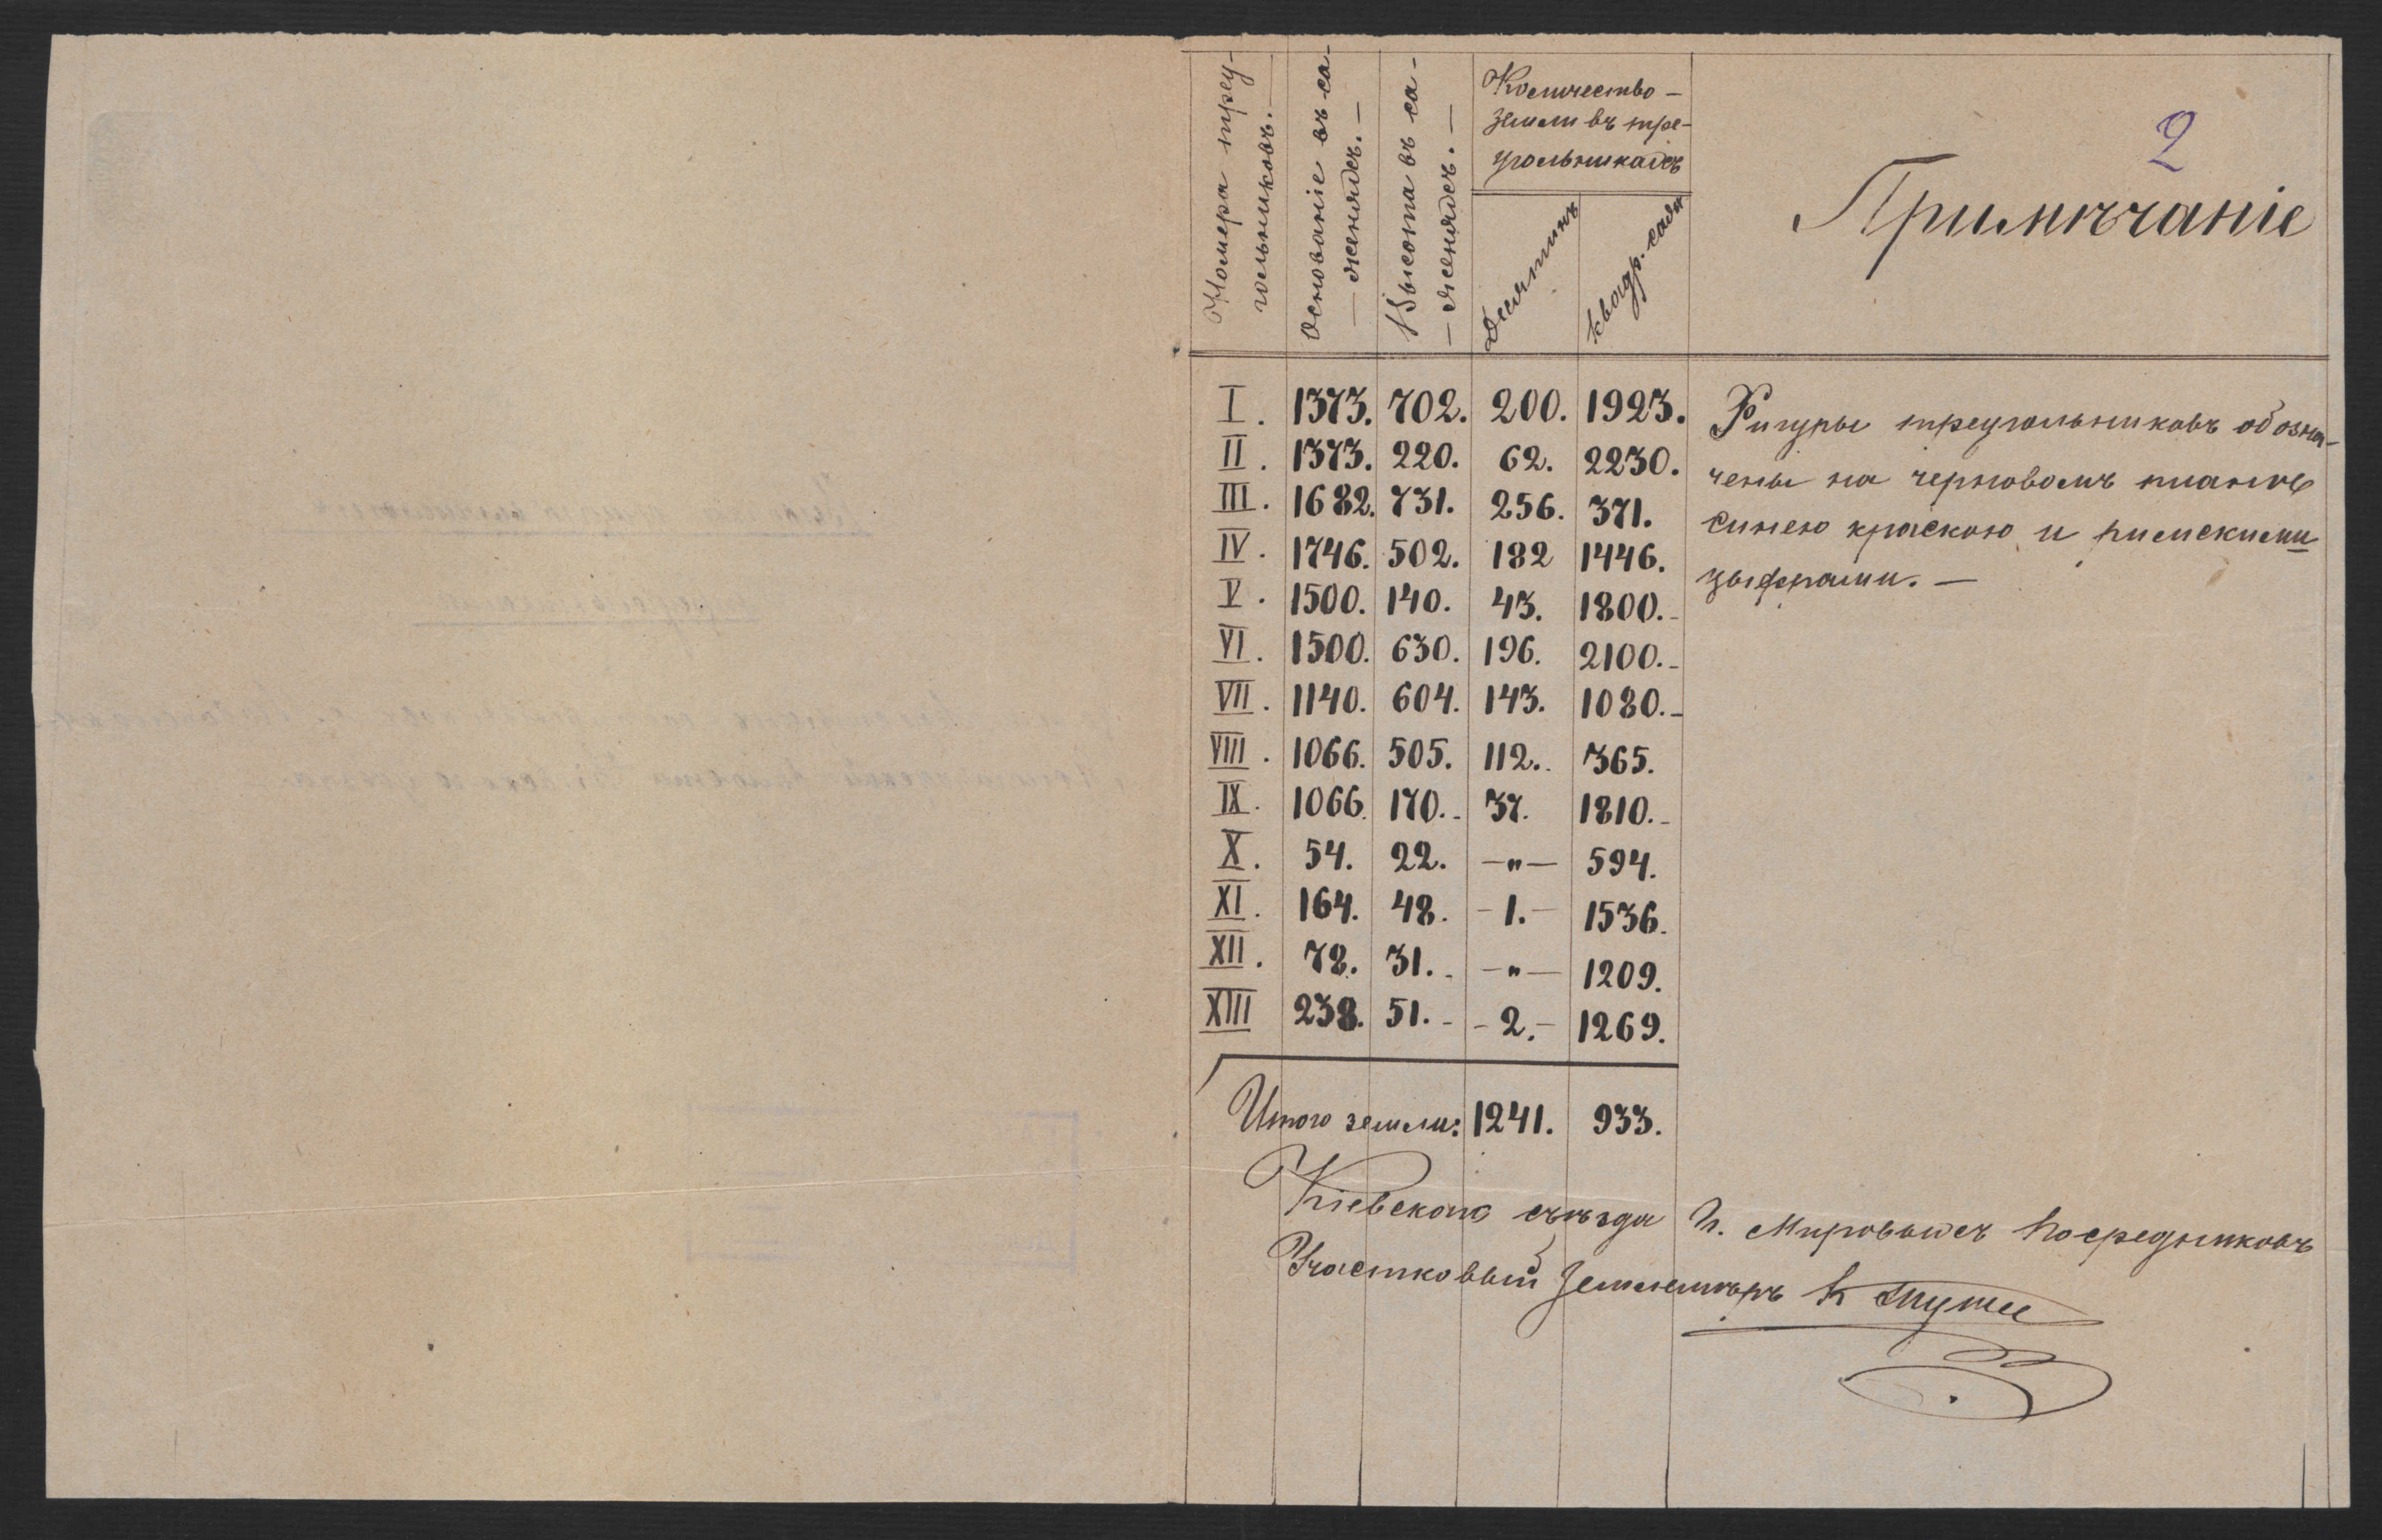 2
Номера треу-
гольниковъ.—
Основаніе въ са-
— женяхъ.—
Высота въ са-
— женяхъ.—
Количество —
земли въ тре-
угольникахъ
Десятинъ
квадр. саж.
Примѣчаніе
I. 1373. 702. 200. 1923.
II. 1373. 220. 62. 2230.
III. 1682. 731. 256. 371.
IV. 1746. 502. 182 1446.
V. 1500. 140. 43. 1800.-
VI. 1500. 630. 196. 2100.-
VII. 1140. 604. 143. 1080.-
VIII. 1066. 505. 112.. 365.
IX. 1066. 170.- 37. 1810.-
X. 54. 22. —"— 594.
XI. 164. 48. -1.- 1536.
XII. 78. 31.- —"— 1209.
XIII 238. 51.- -2.- 1269.
Фигуры треугольниковъ обозна-
чены на черновомъ планѣ
синею краскою и римскими
цыфрами.—
Итого земли: 1241. 933.
Кіевскаго съѣзда Г. Мировыхъ Посредниковъ
Участковый Землемѣръ К